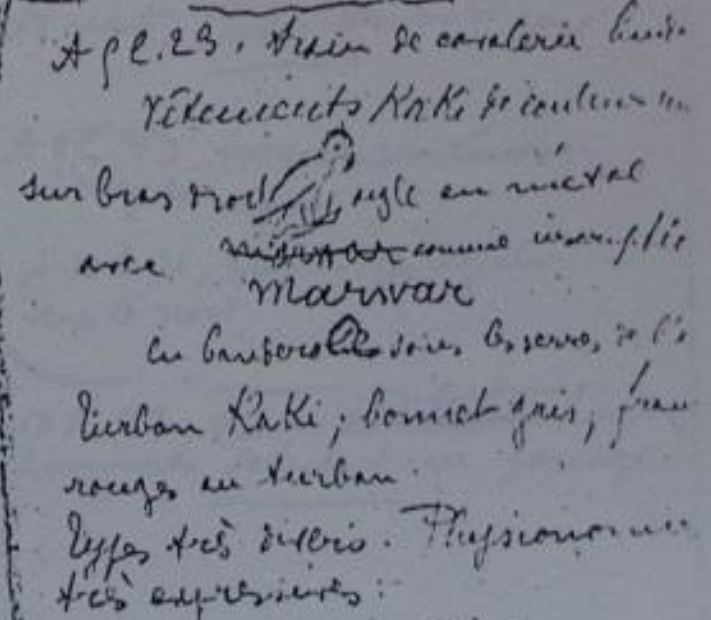 A 9 h. 23. train de cavalerie
Vêtements KaKi de couleur
sur bras droit aigle en métal
avec marwar comme
Marwar
en sous les serres, de l'
Turban KaKi ; bonnet gris,
rouges au turban.
Types très divers. Physionomie
très expressives :